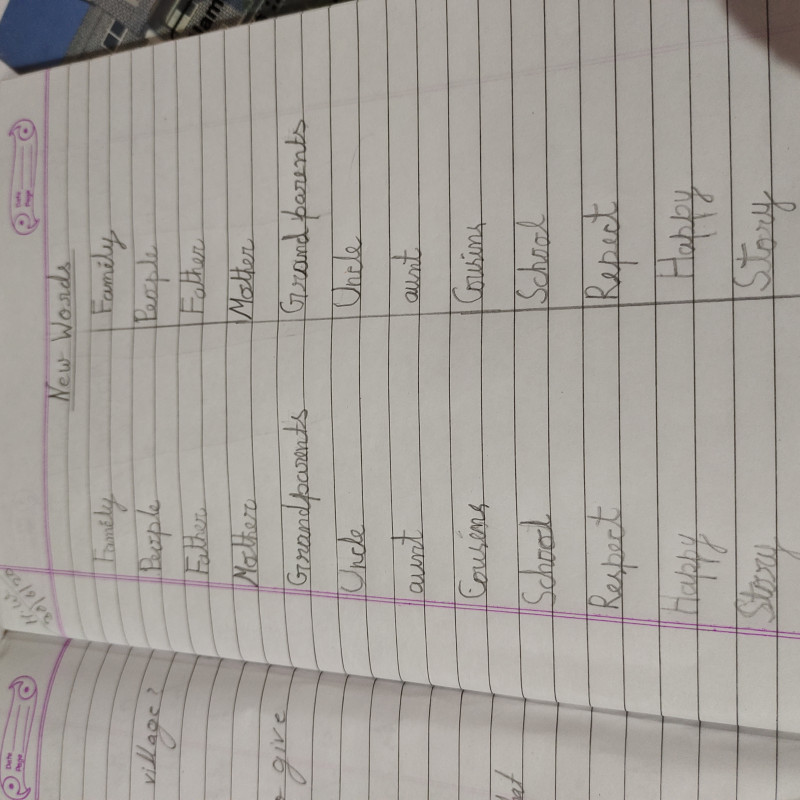 New Words
Family Family
People People
Father Father
Mother Mother
Grandparents Grandparents
Uncle Uncle
aunt aunt
Cousins Cousins
School School
Respect Repect
Happy Happy
Story Story
Date
Page
village?
give
Date
Page